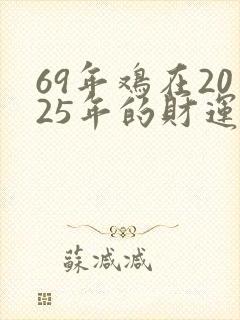 69年鸡在20
25年的財運
蘇减减